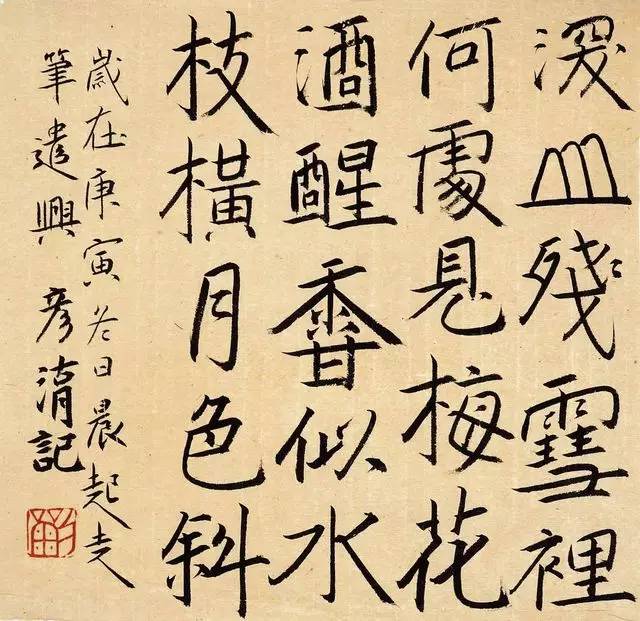 深山殘雪裡
何處見梅花
酒醒香似水
枝橫月色斜
歲在庚寅冬日晨起走
筆遣興 彥 記